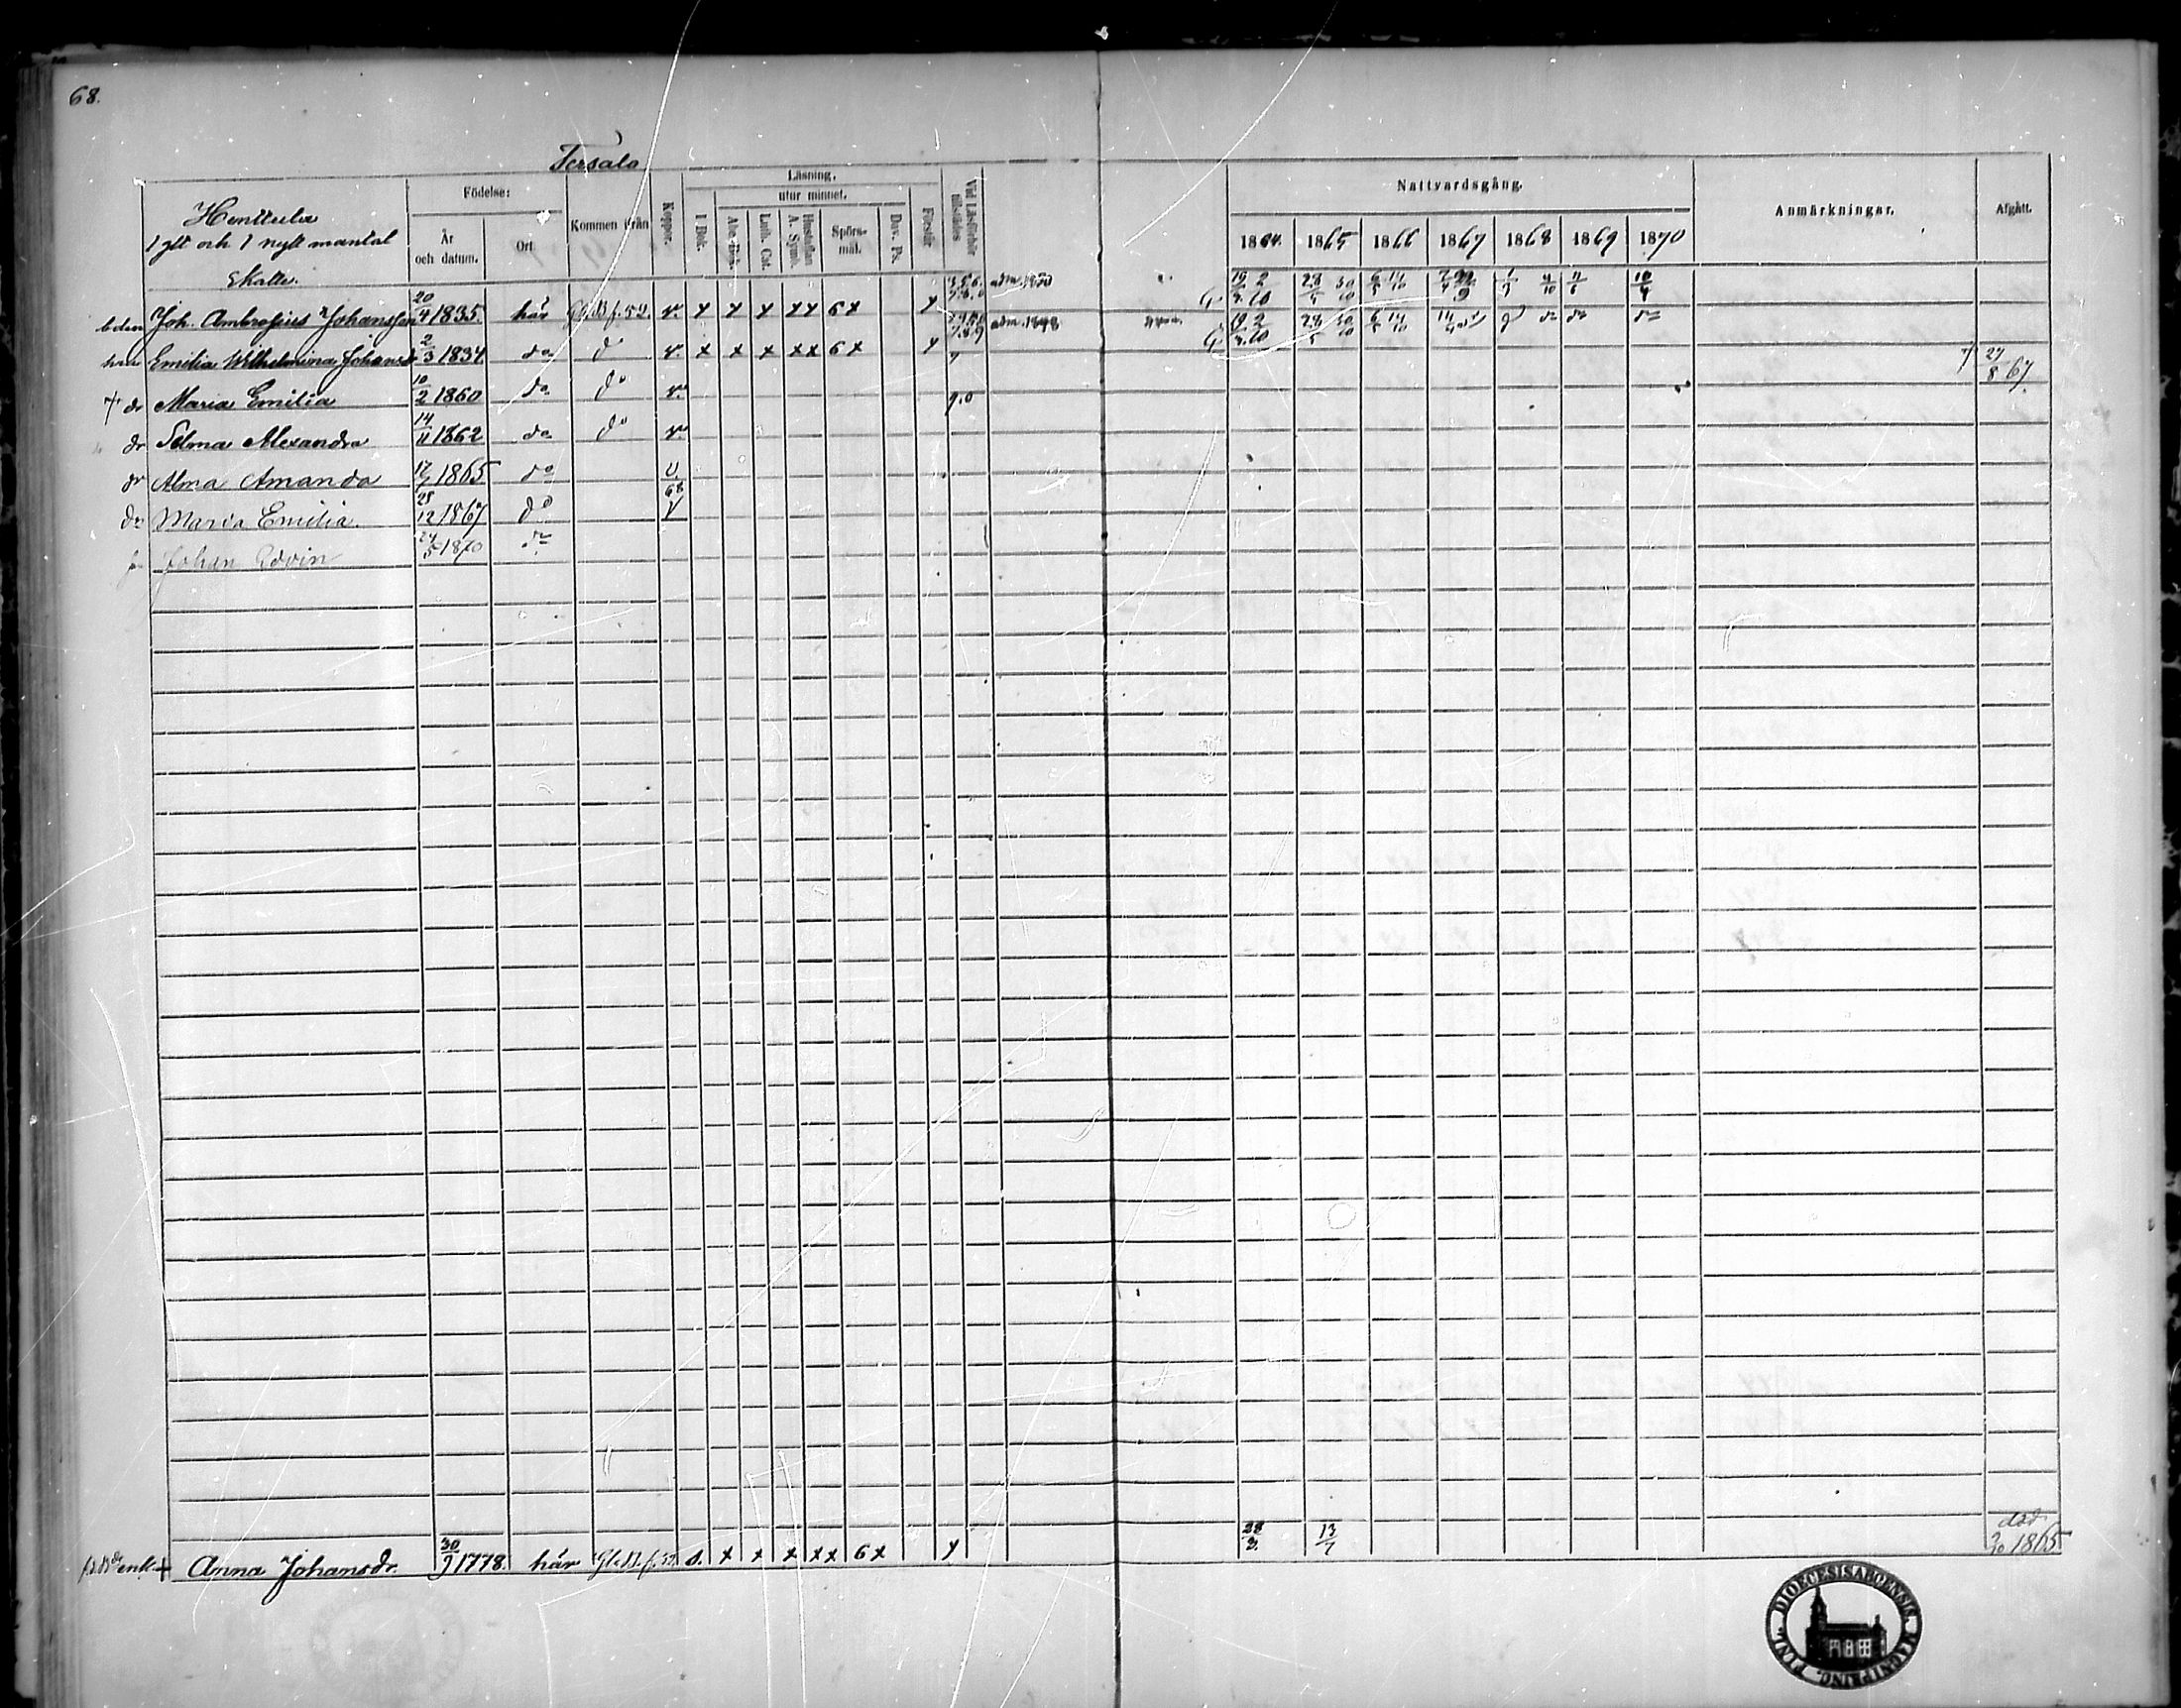 68.
Tersalo
Henttula
1 glt och 1 nytt mantal
Skatte.
Födelse:
År och datum.
Ort.
Kommen ifrån
Koppor.
Läsning.
utur minnet.
I Bok.
Abc-Bok.
Luth. Cat.
Hustaflan A. Symb.
Spörs-mål.
Dav. Ps.
Förstår
Vid Läsförhör tillstädes
Nattvardsgång.
1864. 1865 1866 1867 1868 1869 1870
Anmärkningar.
Afgått.
bden Joh. Ambrosius Johansson 20/4 1835. här Gl.B. f. 52. v. x x x xx 6x x
Emilia Wilhelmina Johansd 2/3 1834. do do v. x x x xx 6x x
† dr Maria Emilia 10/2 1860 do do v. † 27/8 67.
dr Selma Alexandra 14/11 1862 do do v.
dr Alma Amanda 17/7 1865 do
dr Maria Emilia. 28/12 1867 do v
Johan Edvin 24/5 1870 do
enk. + Anna Johansdr. 30/9 1778. här Gl.B. f. 52. s. x x x xx 6x x 13/7 död 1865
DIOECESIS ABOENSIS MAGNI PRINC. FINL.